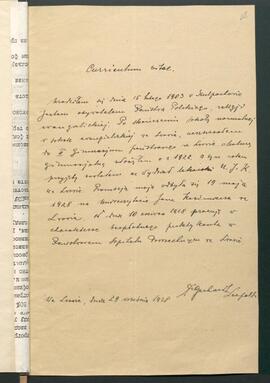 Curriculum vitae.
Urodziłem się dnia 15 lutego 1903 w
Jestem obywatelem Państwa Polskiego, religji
ewangelickiej. Po skończeniu szkoły normalnej
w szkole ewangelickiej we Lwowie, uczęszczałem
do Gimnazjum państwowego we Lwowie
gimnazjalną złożyłem w r. 1922. W tym roku
przyjęty zostałem na Wydział lekarski U. J. K.
we Lwowie. Promocja moja odbyła się 19 maja
1928 na Uniwersytecie Jana Kazimierza we
Lwowie. Od dnia 10 1928 pracuję w
charakterze bezpłatnego praktykanta w
Państwowym Szpitalu Powszechnym we Lwowie
We Lwowie, dnia 29 września 1928
Leopold